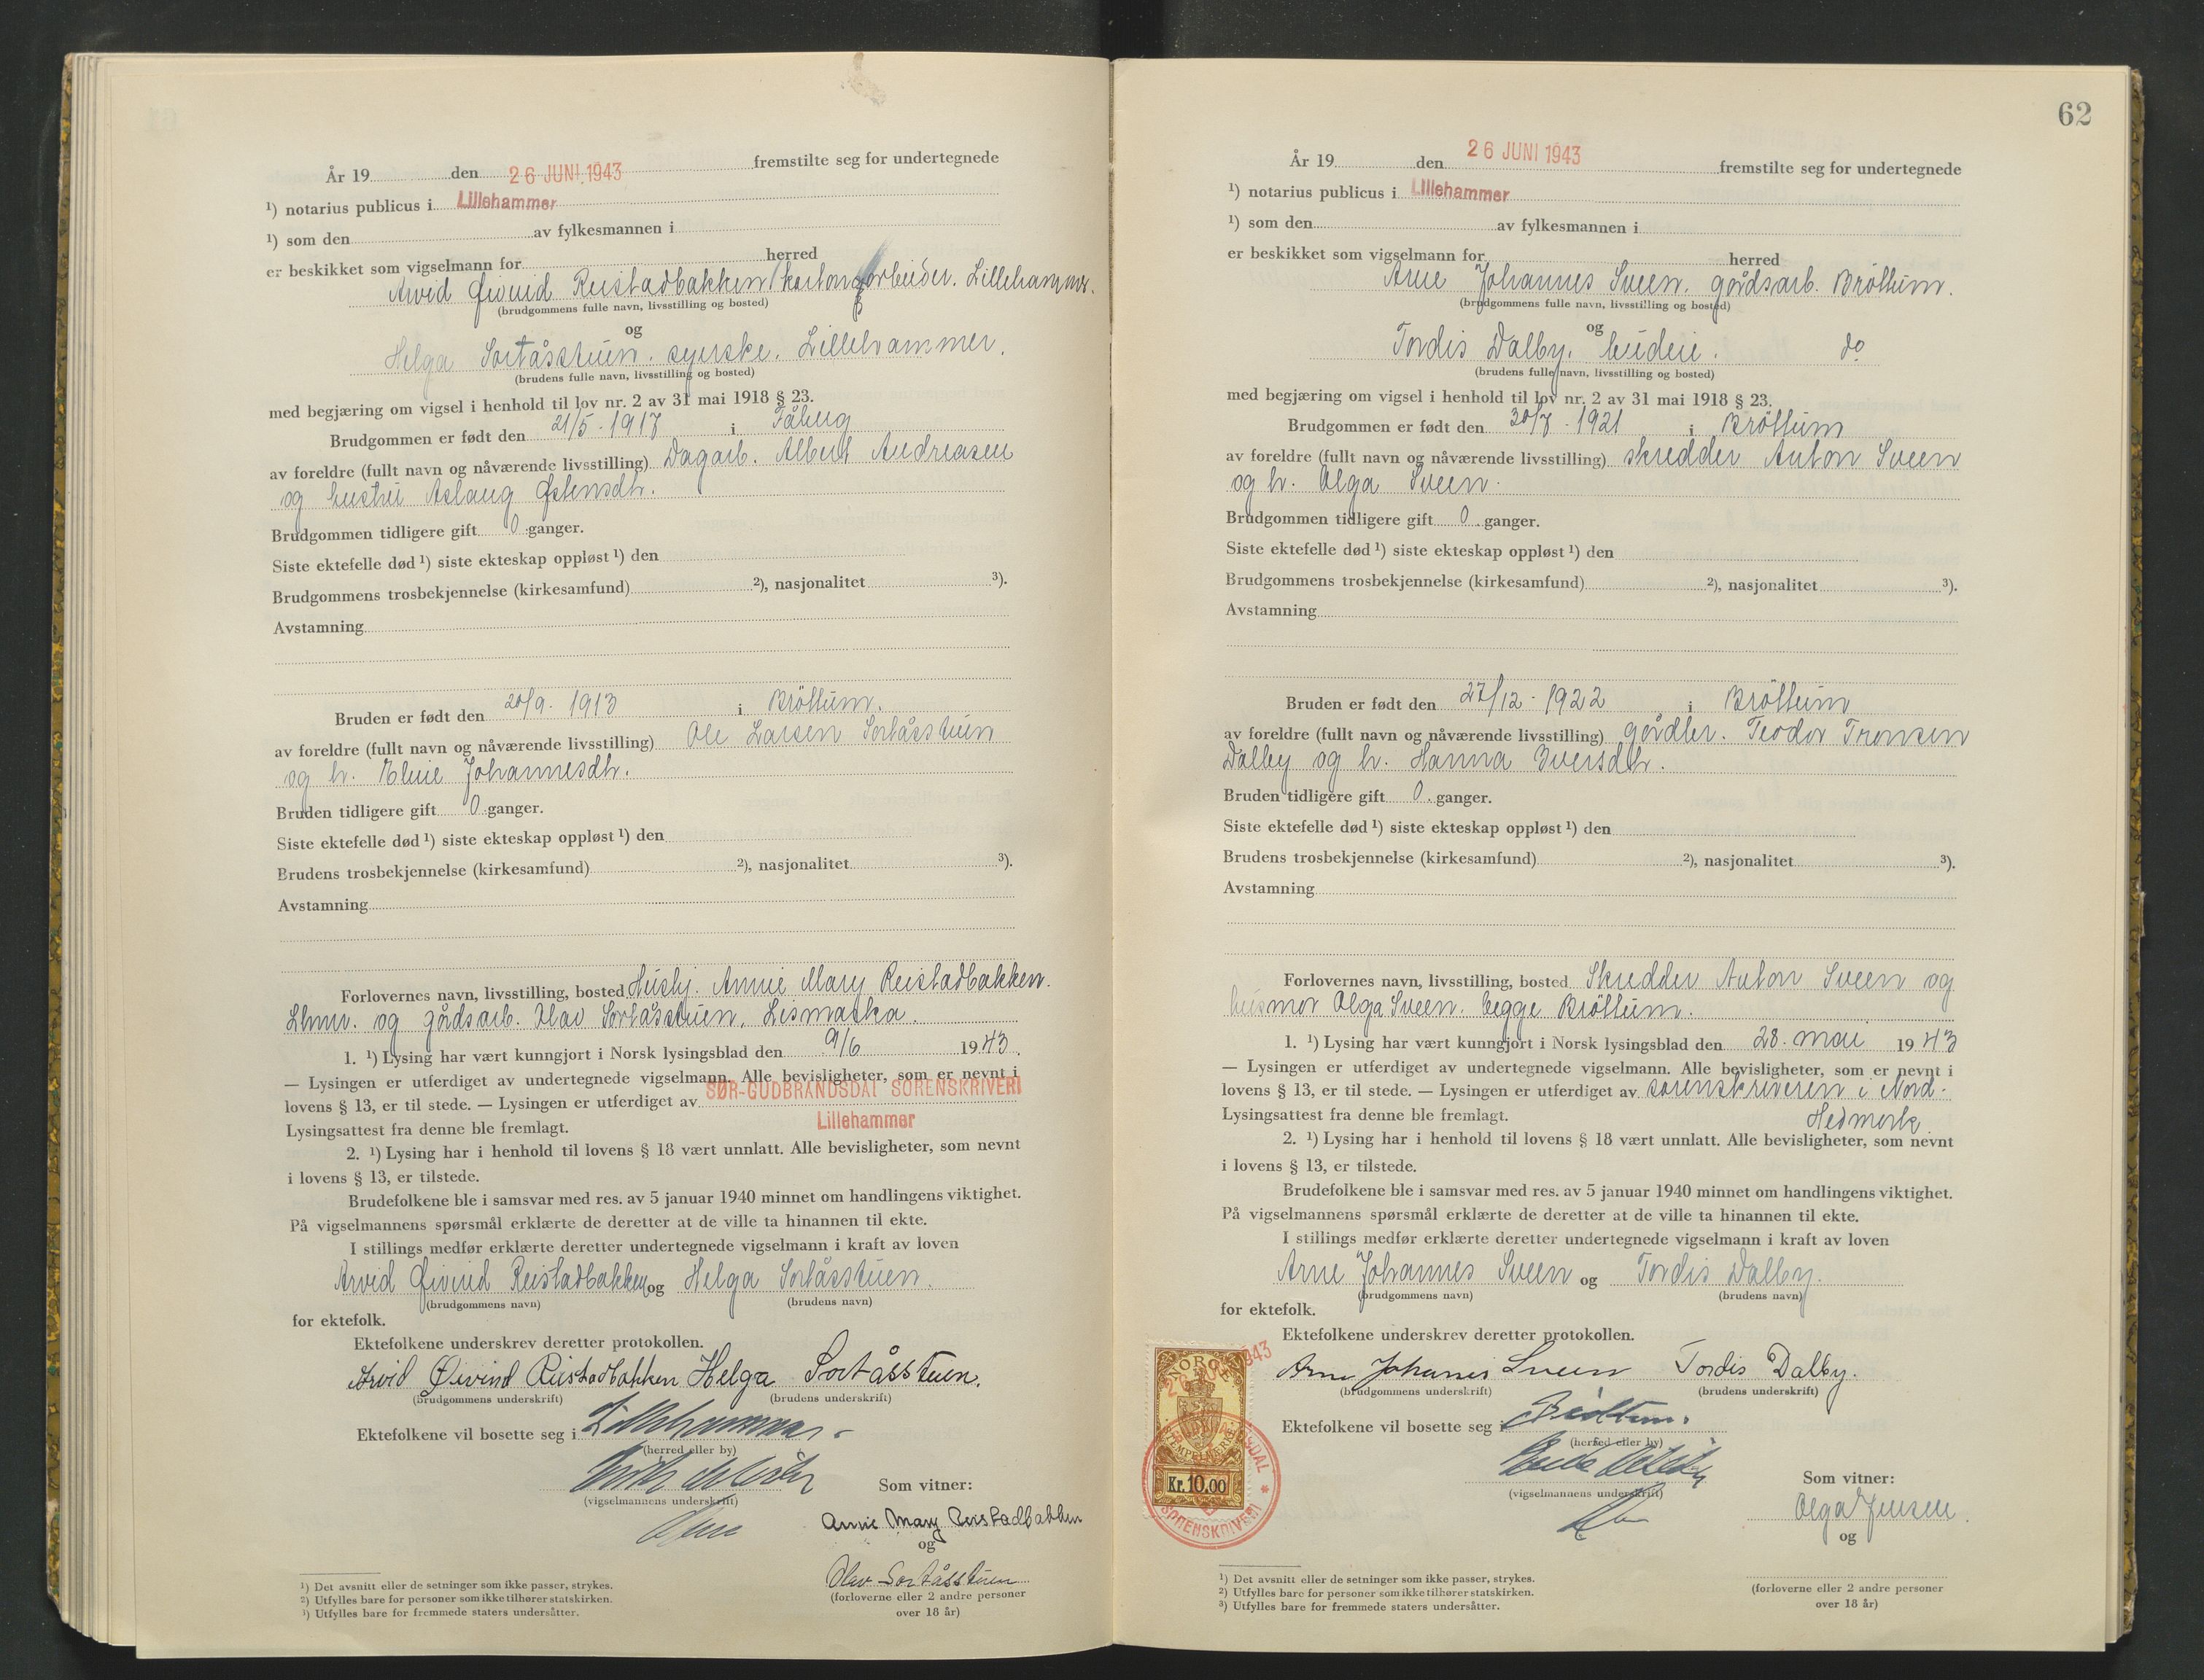 År 19 den 26 JUNI 1943 fremstilte seg for undertegnede
¹) notarius publicus i Lillehammer
¹) som den av fylkesmannen i
er beskikket som vigselmann for herred
Arvid Øivind Reistadbakken, kartongarbeider. Lillehammer.
(brudgommens fulle navn, livsstilling og bosted)
og
Helga Sortåsstuen. syerske. Lillehammer.
(brudens fulle navn, livsstilling og bosted)
med begjæring om vigsel i henhold til lov nr. 2 av 31 mai 1918 § 23.
Brudgommen er født den 21/5 - 1917 i Fåberg
av foreldre (fullt navn og nåværende livsstilling) Dagarb. Albert Andreasen
og hustru Aslaug Østensdtr.
Brudgommen tidligere gift 0 ganger.
Siste ektefelle død ¹) siste ekteskap oppløst ¹) den
Brudgommens trosbekjennelse (kirkesamfund) ²), nasjonalitet ³).
Avstamning
Bruden er født den 20/9 - 1913 i Bröttum.
av foreldre (fullt navn og nåværende livsstilling) Ole Larsen Sortåsstuen
og h. Johannesdtr.
Bruden tidligere gift 0 ganger.
Siste ektefelle død ¹) siste ekteskap oppløst ¹) den
Brudens trosbekjennelse (kirkesamfund) ²), nasjonalitet ³).
Avstamning
Forlovernes navn, livsstilling, bosted Hushj. Annie Mary Reistadbakken.
Lhmr. og gårdsarb. Olav Sortåsstuen, Lismarka.
1. ¹) Lysing har vært kunngjort i Norsk lysingsblad den 9/6 1943.
— Lysingen er utferdiget av undertegnede vigselmann. Alle bevisligheter, som er nevnt i
lovens § 13, er til stede. — Lysingen er utferdiget av SØR-GUDBRANDSDAL SORENSKRIVERI
Lysingsattest fra denne ble fremlagt. Lillehammer
2. ¹) Lysing har i henhold til lovens § 18 vært unnlatt. Alle bevisligheter, som nevnt
i lovens § 13, er tilstede.
Brudefolkene ble i samsvar med res. av 5 januar 1940 minnet om handlingens viktighet.
På vigselmannens spørsmål erklærte de deretter at de ville ta hinannen til ekte.
I stillings medfør erklærte deretter undertegnede vigselmann i kraft av loven
Arvid Øivind Reistadbakken og Helga Sortåsstuen.
(brudgommens navn) (brudens navn)
for ektefolk.
Ektefolkene underskrev deretter protokollen.
Arvid Øivind Reistadbakken Helga Sortåsstuen.
(brudgommens underskrift) (brudens underskrift)
Ektefolkene vil bosette seg i Lillehammer.
(herred eller by)
Som vitner:
(vigselmannens underskrift)
Annie Mary Reistadbakken
og
Olav Sortåsstuen
(forloverne eller 2 andre personer
over 18 år)
¹) Det avsnitt eller de setninger som ikke passer, strykes.
²) Utfylles bare for personer som ikke tilhører statskirken.
³) Utfylles bare for fremmede staters undersåtter.
62
År 19 den 26 JUNI 1943 fremstilte seg for undertegnede
¹) notarius publicus i Lillehammer
¹) som den av fylkesmannen i
er beskikket som vigselmann for herred
Arne Johannes Sveen. gårdsarb. Bröttum.
(brudgommens fulle navn, livsstilling og bosted)
og
Tordis Dalby. budeie. do
(brudens fulle navn, livsstilling og bosted)
med begjæring om vigsel i henhold til lov nr. 2 av 31 mai 1918 § 23.
Brudgommen er født den 30/7 - 1921 i Bröttum
av foreldre (fullt navn og nåværende livsstilling) skredder Anton Sveen
og h. Olga Sveen.
Brudgommen tidligere gift 0 ganger.
Siste ektefelle død ¹) siste ekteskap oppløst ¹) den
Brudgommens trosbekjennelse (kirkesamfund) ²), nasjonalitet ³).
Avstamning
Bruden er født den 27/12 - 1922 i Bröttum
av foreldre (fullt navn og nåværende livsstilling) gårdbr. Teodor Tronsen
Dalby og h. Hanna Iversdtr.
Bruden tidligere gift 0 ganger.
Siste ektefelle død ¹) siste ekteskap oppløst ¹) den
Brudens trosbekjennelse (kirkesamfund) ²), nasjonalitet ³).
Avstamning
Forlovernes navn, livsstilling, bosted Skredder Anton Sveen og
husmor Olga Sveen. begge Bröttum.
1. ¹) Lysing har vært kunngjort i Norsk lysingsblad den 28. mai 1943
— Lysingen er utferdiget av undertegnede vigselmann. Alle bevisligheter, som er nevnt i
lovens § 13, er til stede. — Lysingen er utferdiget av sorenskriveren i Nord-
Lysingsattest fra denne ble fremlagt. Hedmark.
2. ¹) Lysing har i henhold til lovens § 18 vært unnlatt. Alle bevisligheter, som nevnt
i lovens § 13, er tilstede.
Brudefolkene ble i samsvar med res. av 5 januar 1940 minnet om handlingens viktighet.
På vigselmannens spørsmål erklærte de deretter at de ville ta hinannen til ekte.
I stillings medfør erklærte deretter undertegnede vigselmann i kraft av loven
Arne Johannes Sveen og Tordis Dalby.
(brudgommens navn) (brudens navn)
for ektefolk.
Ektefolkene underskrev deretter protokollen.
Arne Johannes Sveen Tordis Dalby.
(brudgommens underskrift) (brudens underskrift)
Ektefolkene vil bosette seg i Brøttum.
(herred eller by)
Som vitner:
(vigselmannens underskrift)
Olga Jensen.
og
(forloverne eller 2 andre personer
over 18 år)
NORGE
STEMPELMERKE
Kr. 10.00
SORENSKRIVERI
¹) Det avsnitt eller de setninger som ikke passer, strykes.
²) Utfylles bare for personer som ikke tilhører statskirken.
³) Utfylles bare for fremmede staters undersåtter.